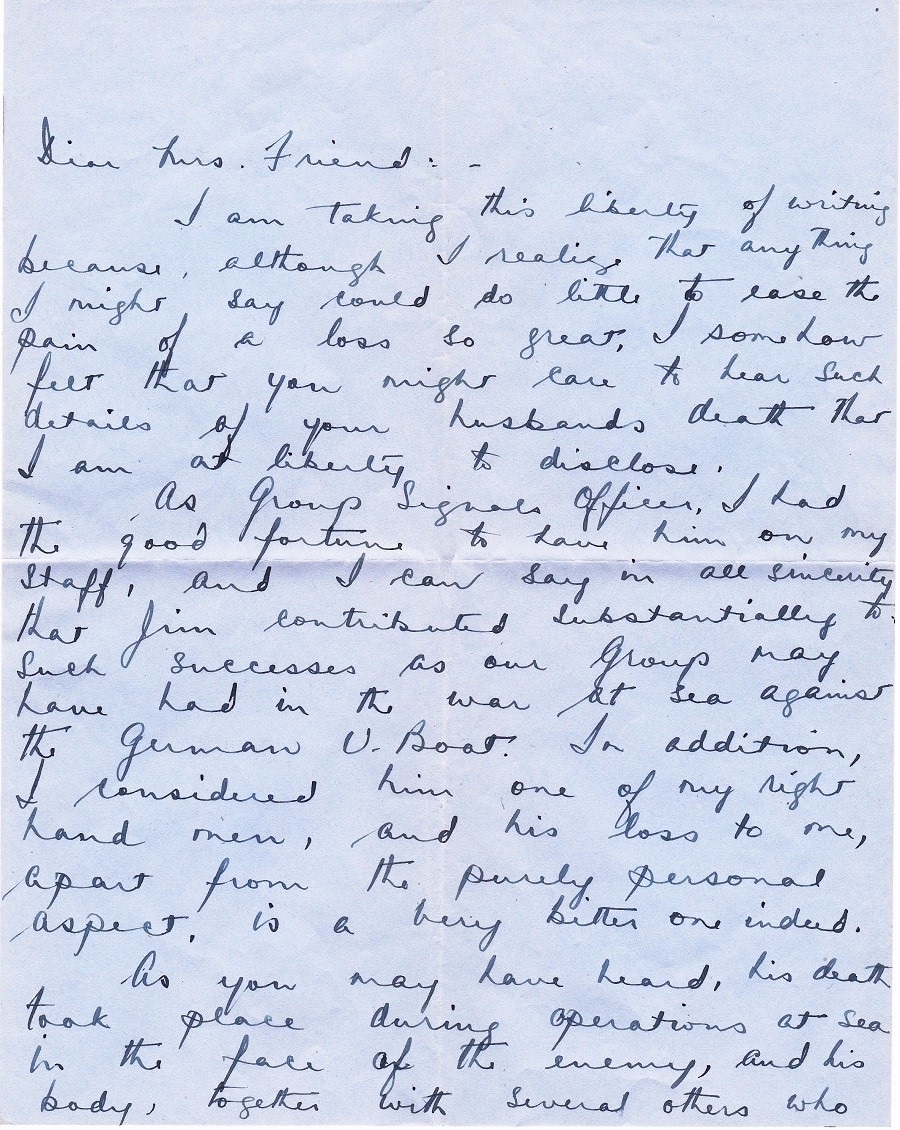 Dear Mrs. Friend: -
I am taking this liberty of writing
because, although I realize that anything
I might say could do little to ease the
pain of a loss so great, I somehow
felt that you might care to hear such
details of your husbands death that
I am at liberty to disclose.
As Group Signals Officer, I had
the good fortune to have him on my
staff, and I can say in all sincerity
that Jim contributed substantially to
such successes as our Group may
have had in the war at sea against
the German U-Boat. In addition,
I considered him one of my right
hand men, and his loss to me,
apart from the purely personal
aspect, is a very bitter one indeed.
As you may have heard, his death
took place during operations at sea
in the face of the enemy, and his
body, together with several others who